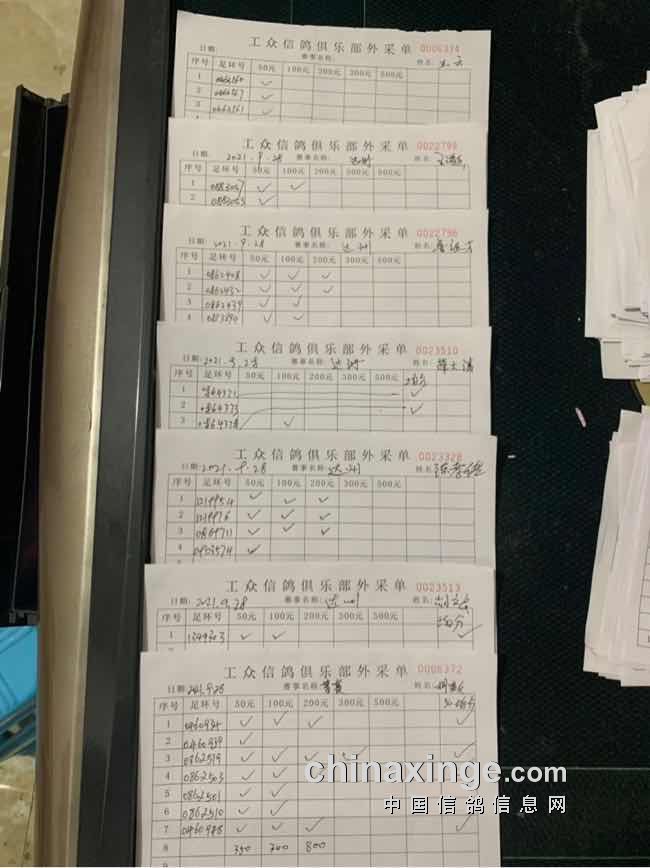 工众信鸽俱乐部外采单 0006374
日期: 赛事名称: 姓名:
序号 足环号 50元 100元 200元 300元 500元
1 ✓
2 ✓
3 ✓
工众信鸽俱乐部外采单
日期: 2021.9.28 赛事名称: 达州 姓名:
序号 足环号 50元 100元 200元 300元 500元
1 ✓ ✓
2 ✓
工众信鸽俱乐部外采单 0022796
日期: 2021.9.28 赛事名称: 达州 姓名:
序号 足环号 50元 100元 200元 300元 500元
1 0862408 ✓ ✓ ✓
2 0862432 ✓ ✓ ✓
3 0862439 ✓ ✓
4 ✓ ✓
工众信鸽俱乐部外采单 0023510
日期: 2021.9.28 赛事名称: 达州 姓名: 薛大涛
序号 足环号 50元 100元 200元 300元 500元 均分
1 0864321 ✓
2 0864373 ✓
3 0864378 ✓
工众信鸽俱乐部外采单 0023328
日期: 2021.9.28 赛事名称: 达州 姓名:
序号 足环号 50元 100元 200元 300元 500元
1 ✓ ✓ ✓
2 ✓ ✓ ✓
3 0869711 ✓ ✓ ✓
4 0903574 ✓
工众信鸽俱乐部外采单 0023513
日期: 2021.9.28 赛事名称: 达州 姓名:
序号 足环号 50元 100元 200元 300元 500元 均分 ✓
1 1349303 ✓ ✓
工众信鸽俱乐部外采单 0006372
日期: 赛事名称: 姓名:
序号 足环号 50元 100元 200元 300元 500元 均分
1 ✓ ✓ ✓ ✓
2 0460939 ✓
3 0862519 ✓ ✓ ✓ ✓ ✓
4 0862503 ✓ ✓
5 0862501 ✓ ✓
6 0862510 ✓ ✓
7 0460988 ✓ ✓ ✓ ✓
8 350 700 800
chinaxinge.com
中国信鸽信息网